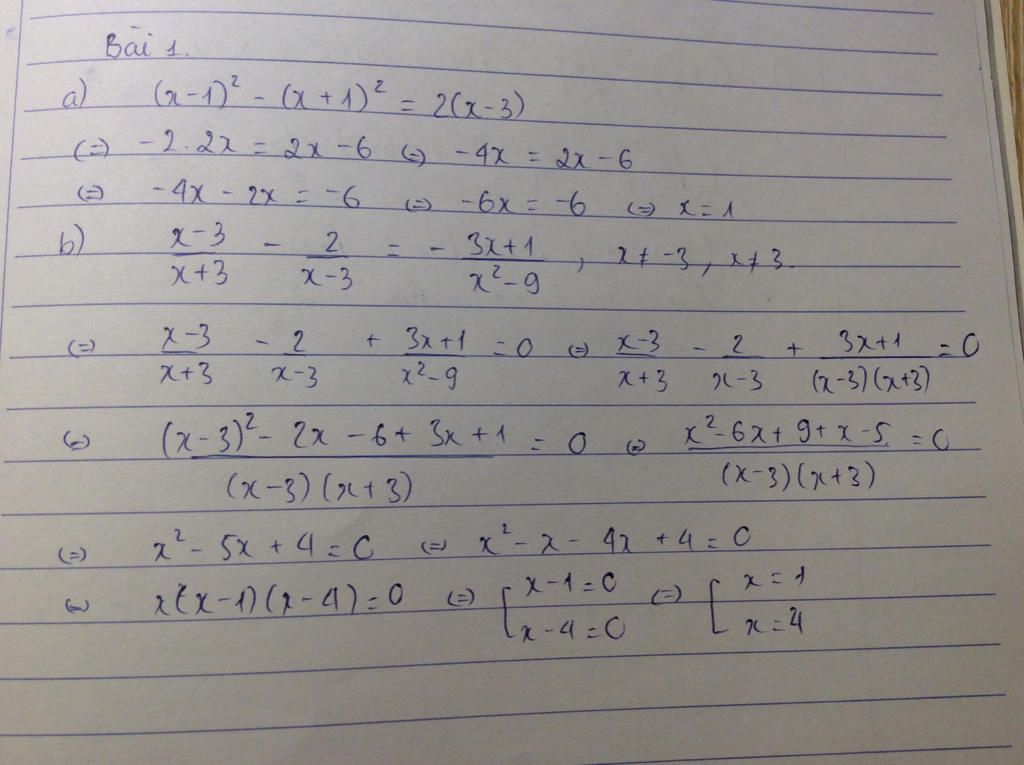 Bài 1.
a) (x-1)² - (x+1)² = 2(x-3)
(=) -2.2x = 2x - 6 (=) -4x = 2x - 6
(=) -4x - 2x = -6 (=) -6x = -6 (=) x = 1
b) \frac{x-3}{x+3} - \frac{2}{x-3} = - \frac{3x+1}{x²-9} , x ≠ -3, x ≠ 3.
(=) \frac{x-3}{x+3} - \frac{2}{x-3} + \frac{3x+1}{x²-9} = 0 (=) \frac{x-3}{x+3} - \frac{2}{x-3} + \frac{3x+1}{(x-3)(x+3)} = 0
(=) \frac{(x-3)² - 2x - 6 + 3x + 1}{(x-3)(x+3)} = 0 (=) \frac{x² - 6x + 9 + x - 5}{(x-3)(x+3)} = 0
(=) x² - 5x + 4 = 0 (=) x² - x - 4x + 4 = 0
(=) (x-1)(x-4) = 0 (=) [ x - 1 = 0 ; x - 4 = 0 (=) [ x = 1 ; x = 4